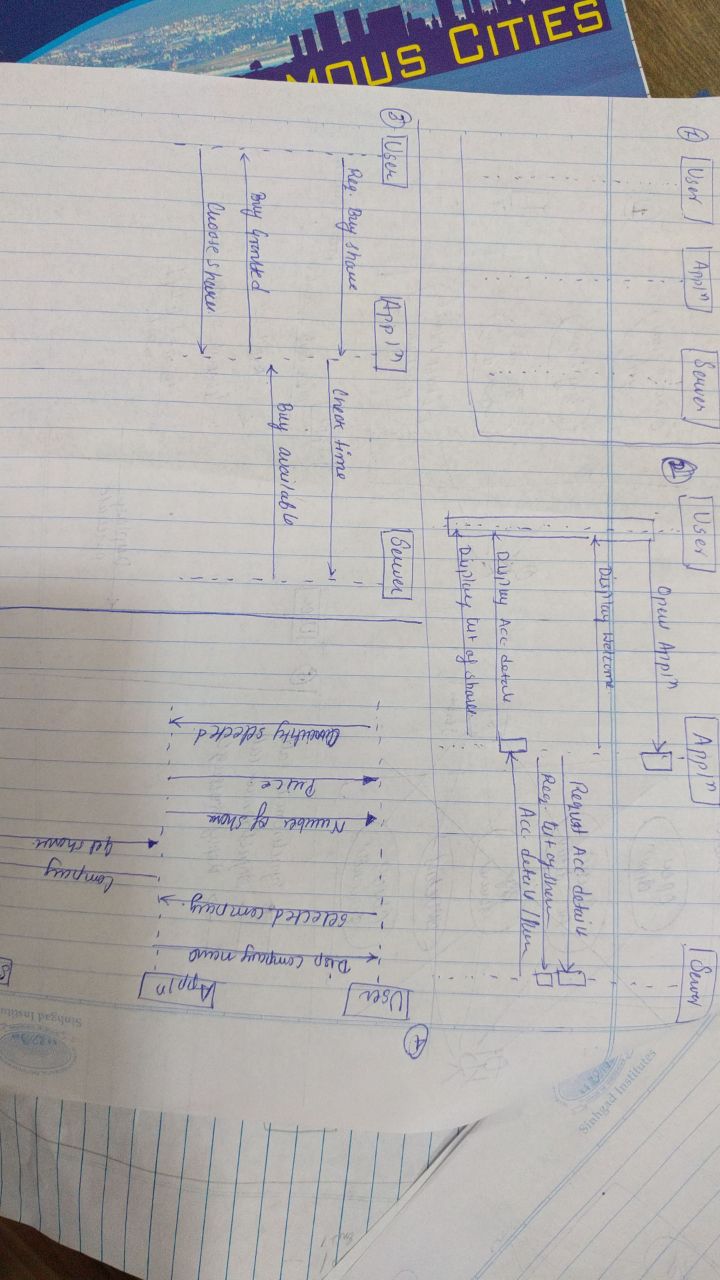 1
User
Appl^n
Server
2
User
Appl^n
Server
Open Appl^n
Display Welcome
Request Acc. details
Req. list of shares
Acc. details /
Display Acc. details
Display list of shares
3
User
Appl^n
Server
Req. Buy share
Check time
Buy available
Buy Granted
Choose shares
4
User
Appl^n
Disp company name
Selected company.
Company
Get shares
Number of share
Price
Quantity selected
Sinhgad Institutes
Sinhgad Institutes
MOUS CITIES